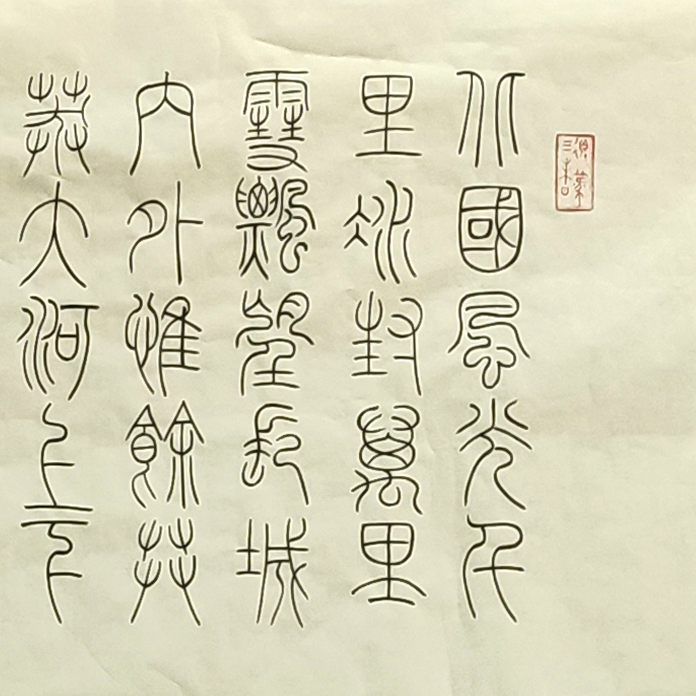 北國風光千
里冰封萬里
雪飄望長城
內外惟餘莽
莽大河上下